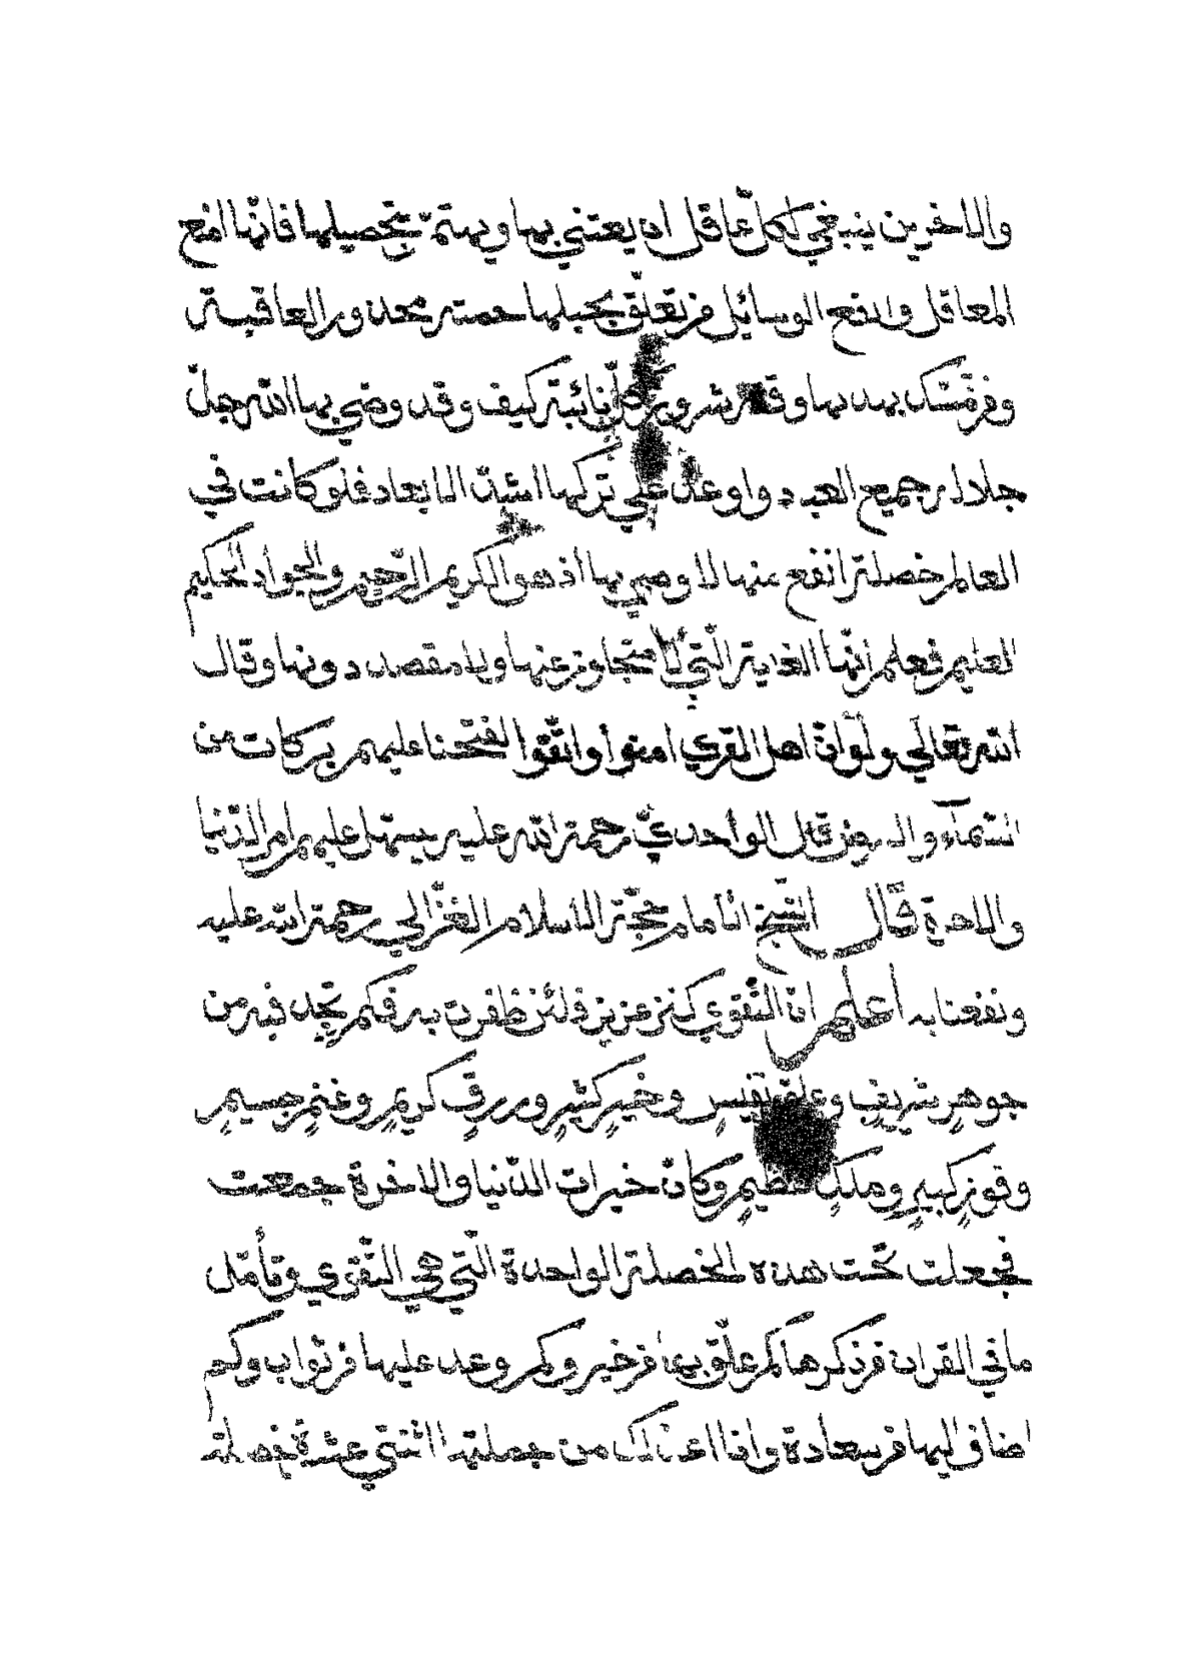 والاخرين ينبغي لكلّ عاقل ان يعتني بها ويهتمّ بتحصيلها فانّها امنع
المعاقل وانفع الوسائل فمن تعلّق بحبلها حمته محذور العاقبة
ومن تمسّك بهديها وقته شرور كلّ نائبة كيف وقد وصّي بها الله جلّ
جلاله جميع العبيد واوعد علي تركها اشدّ الابعاد فلو كانت في
العالم خصلة انفع منها لاوصي بها اذ هو الكريم الرّحيم والجواد الحكيم
العليم فعلم انّها الغاية الّتي لا متجاوز عنها ولا مقصد دونها وقال
الله تعالي ولو انّ اهل القري امنوا واتّقوا لفتحنا عليهم بركات من
السّمآء والارض قال الواحديّ رحمة الله عليه يسهّل عليهم امر الدّنيا
والاخرة قال الشّيخ الامام حجّة الاسلام الغزّالي رحمة الله عليه
ونفعنا به أعلم انّ التّقوي كنز عزيز فلئن ظفرت به فكم تجد فيه من
جوهرٍ شريفٍ وعلق نفيسٍ وخيرٍ كثيرٍ ورزقٍ كريمٍ وغنمٍ جسيمٍ
وفوزٍ كبيرٍ وملكٍ عظيمٍ وكانّ خيرات الدّنيا والاخرة جمعت
فجعلت تحت هذه الخصلة الواحدة الّتي هي التّقوي وتأمّل
ما في القران من ذكرها كم علّق بها من خير وكم وعد عليها من ثواب وكم
اضاف اليها من سعادة وانا اعدّ لك من جملتها اثنتي عشرة خصلة